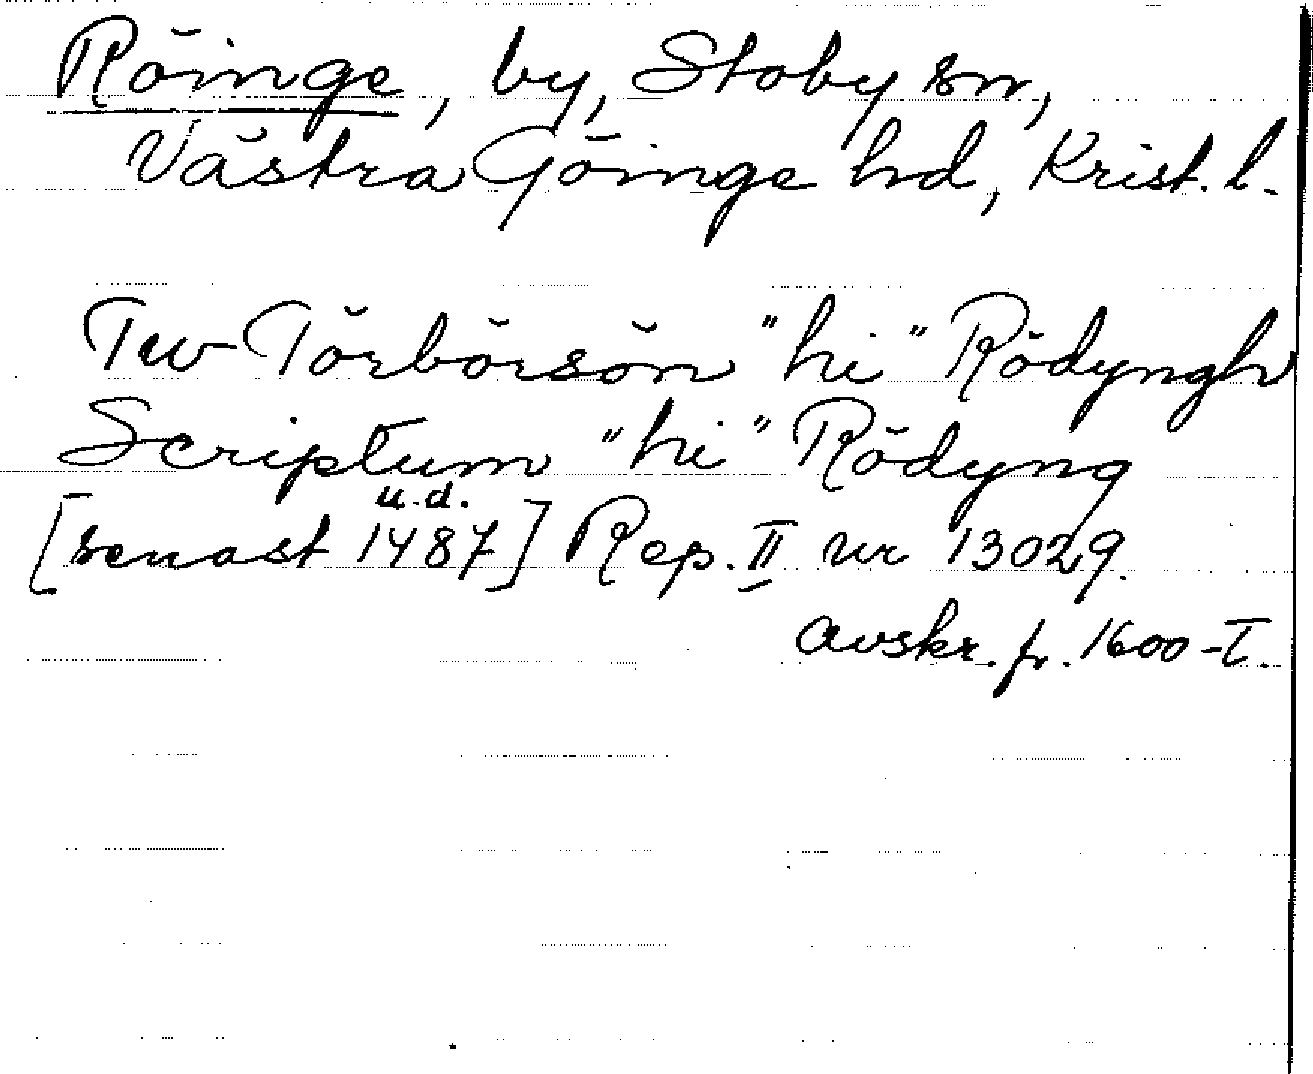 Röinge, by, Stoby sn,
Västra Göinge hd, Krist. l.
Tw Törbörsön "hi" Rödyngh
Scriptum "hi" Rödyng
u.d.
[senast 1487] Rep. II nr 13029.
avskr. fr. 1600-T.